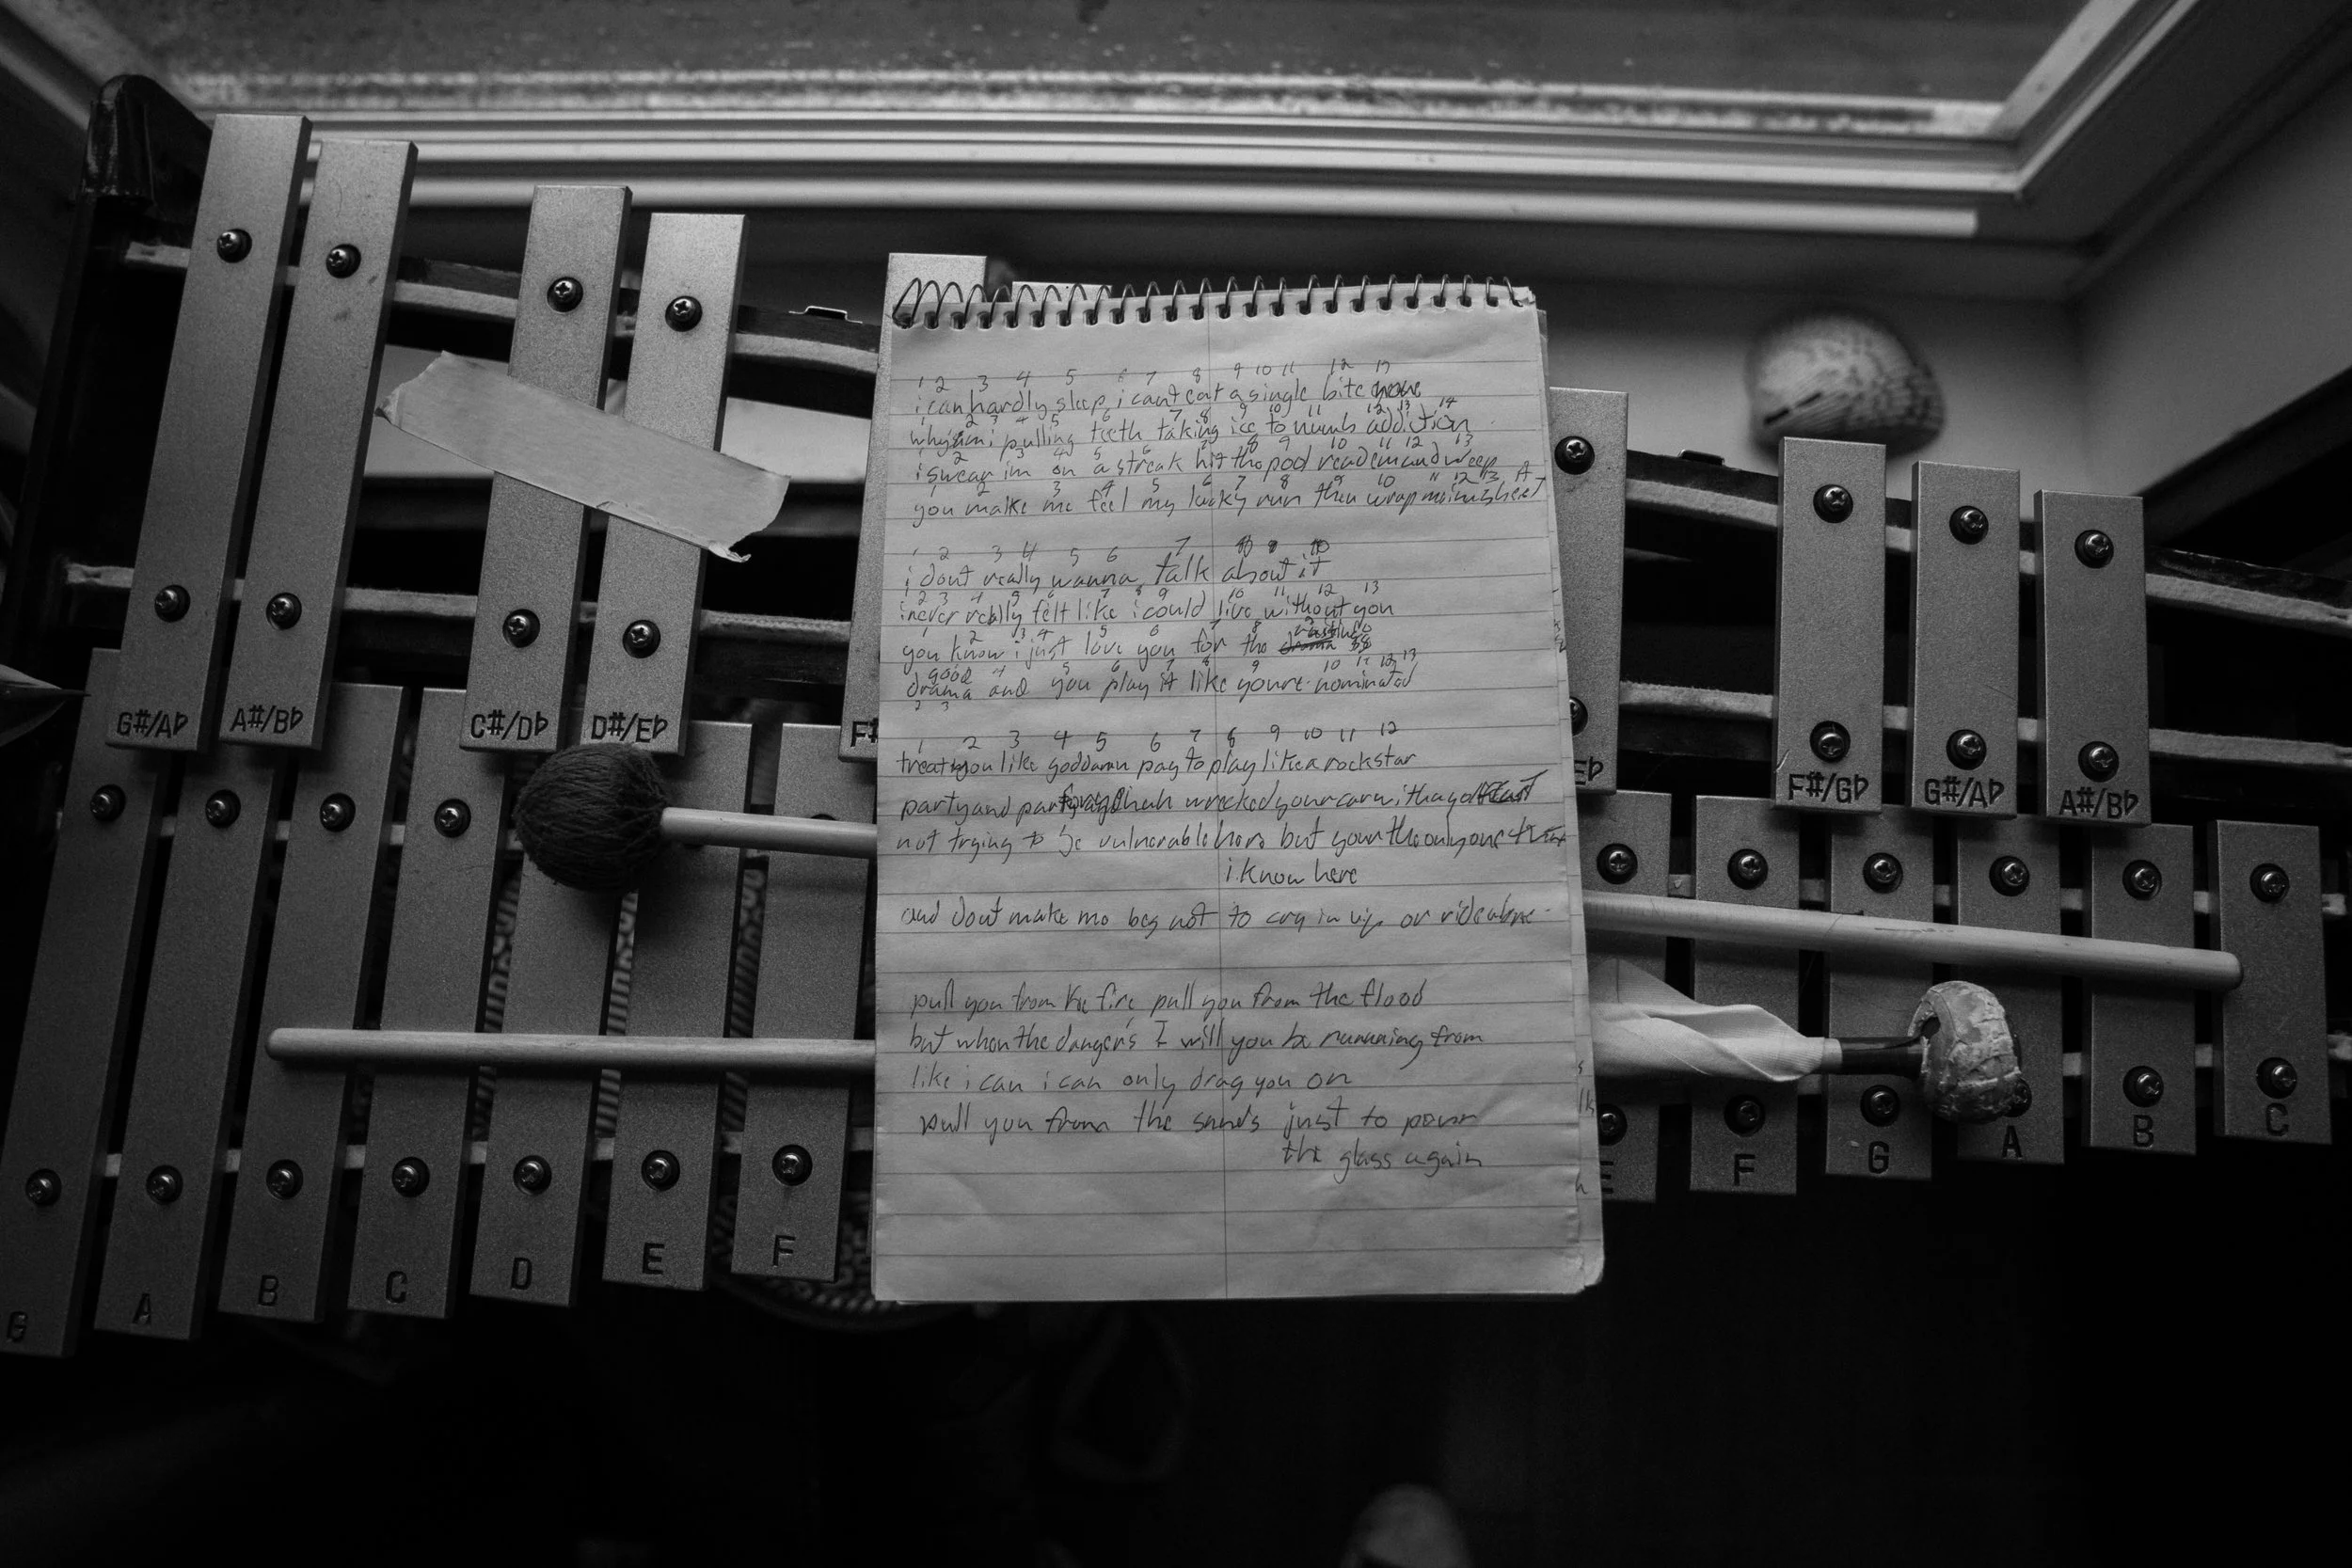 1 2 3 4 5 6 7 8 9 10 11 12 13
i can hardly sleep i cant eat a single bite
2 3 4 5 6 7 8 9 10 11 12 13 14
why am i pulling teeth taking ice to numb addiction
2 3 4 5 6 7 8 9 10 11 12 13
i swear im on a streak hit the pool read em and weep
1 2 3 4 5 6 7 8 9 10 11 12 13
you make me feel my lucky run then wrap me in sheet
1 2 3 4 5 6 7 8 9 10
i dont really wanna talk about it
2 3 4 5 6 7 8 9 10 11 12 13
i never really felt like i could live without you
1 2 3 4 5 6 7 8
you know i just love you for the
good 4 5 6 7 8 9 10 11 12 13
drama and you play it like youre nominated
2 3
1 2 3 4 5 6 7 8 9 10 11 12
treat you like goddamn pay to play like a rockstar
party and huh wrecked your car with a
not trying to be vulnerable here but your the only one that
i know here
and dont make me beg not to cry in vip or ride alone
pull you from the fire pull you from the flood
but when the danger's I will you be running from
like i can i can only drag you on
pull you from the sands just to pour
the glass again
G#/A♭ A#/B♭ C#/D♭ D#/E♭ F# E♭ F#/G♭ G#/A♭ A#/B♭
G A B C D E F E F G A B C